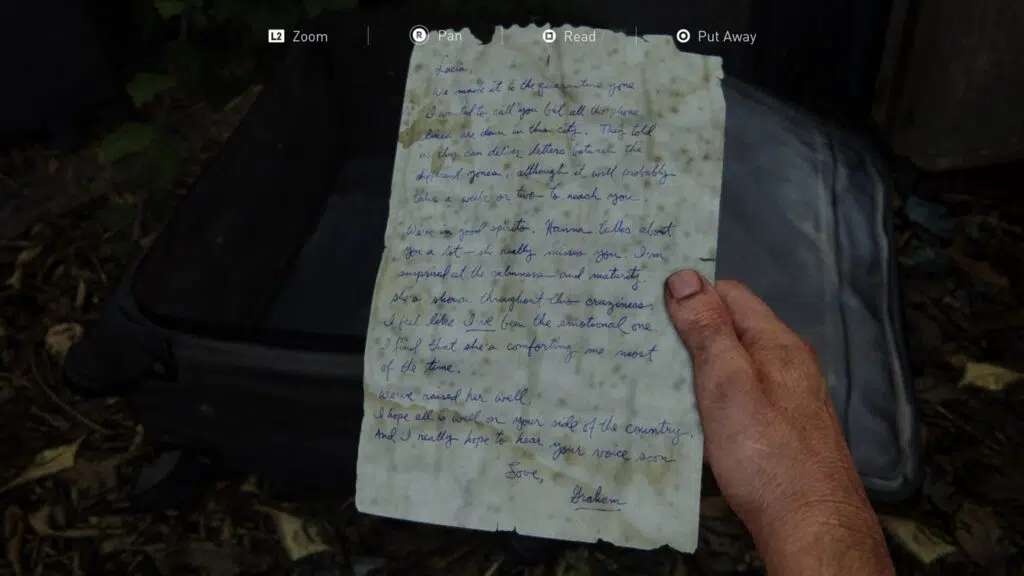 L2 Zoom R Pan Read Put Away
Lucia,
We made it to the quarantine zone.
I wanted to call you but all the phone
lines are down in this city. They told
us they can deliver letters between the
different zones, although it will probably
take a week or two to reach you.
We're in good spirits. Hanna talks about
you a lot - she really misses you. I'm
surprised at the calmness and maturity
she's shown throughout this craziness.
I feel like I've been the emotional one.
I find that she's comforting me most
of the time.
We've raised her well.
I hope all is well on your side of the country.
And I really hope to hear your voice soon.
Love,
Graham